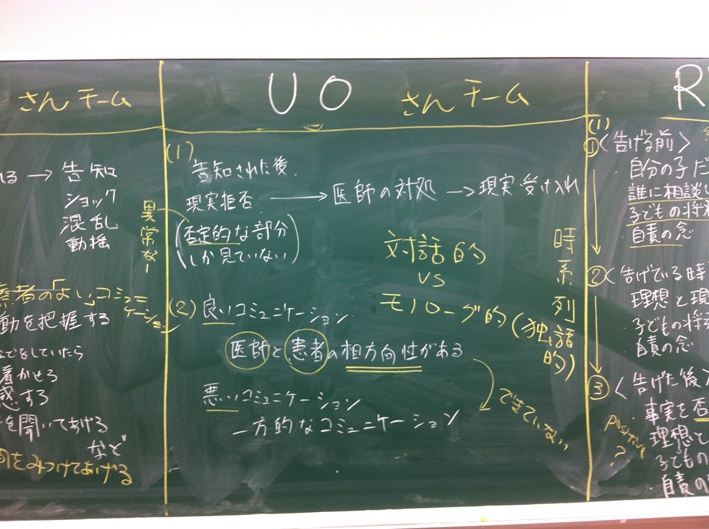 さんチーム
る → 告知
ショック
混乱
動揺
患者の「よい」コミュニケーション
動を把握する
などをしていたら
着かせる
感する
を聞いてあげる
など
をみつけてあげる
UO さんチーム
(1)
告知された後、
現実拒否 → 医師の対処 → 現実受け入れ
(否定的な部分
しか見ていない)
異常な
対話的
vs
モノローグ的(独話的)
時系列
(2) 良いコミュニケーション
医師と患者の相方向性がある
悪いコミュニケーション
一方的なコミュニケーション
できていない
R
(1)
① <告げる前>
自分の子だ
誰に相談し
子どもの将来
自責の念
② <告げている時
理想と現
子どもの将
自責の念
③ <告げた後>
事実を否
理想と
子どもの
自責の
positive
?